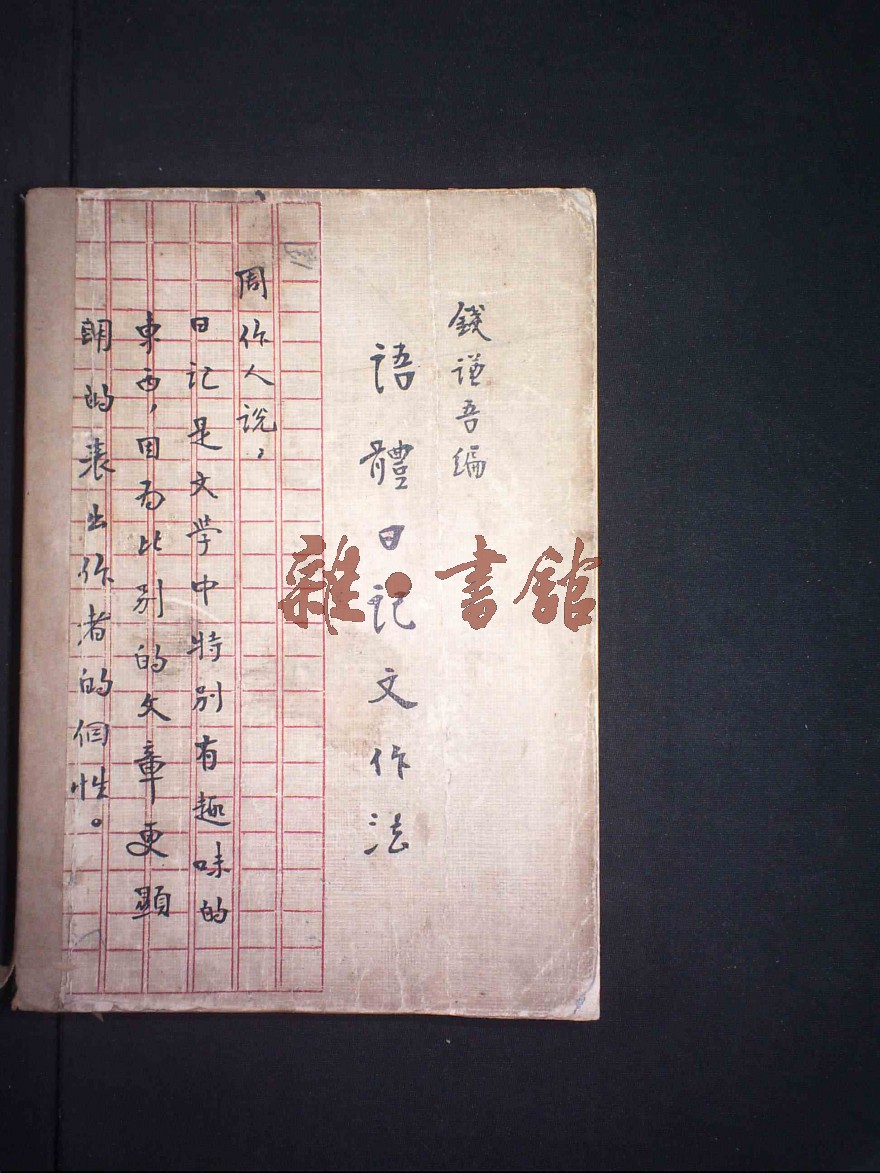 錢謙吾編
語體日記文作法
周作人說，
日記是文學中特別有趣味的
東西，因為比別的文章更顯
朙的表出作者的個性。
雜·書館